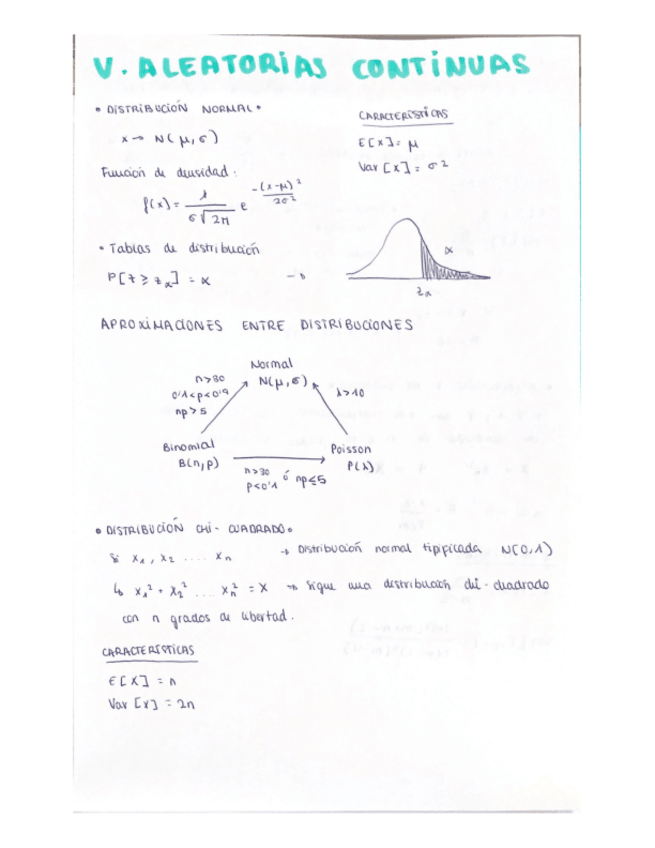 V. ALEATORIAS CONTINUAS
• DISTRIBUCIÓN NORMAL •
x → N(μ, σ)
CARACTERÍSTICAS
E[x] = μ
Var [x] = σ²
Función de densidad:
f(x) = 1/(σ√2π) e^(-(x-μ)²/2σ²)
• Tablas de distribución
P[z ≥ zα] = α →
α
zα
APROXIMACIONES ENTRE DISTRIBUCIONES
Normal
N(μ, σ)
n>30
0'1<p<0'9
np>5
λ>10
Binomial
B(n,p)
Poisson
P(λ)
n>30
p<0'1 ó np≤5
• DISTRIBUCIÓN CHI-CUADRADO •
Si x₁, x₂ .... xₙ → Distribución normal tipificada N(0,1)
↳ x₁² + x₂² .... xₙ² = X → Sigue una distribución chi-cuadrado
con n grados de libertad.
CARACTERÍSTICAS
E[X] = n
Var [x] = 2n